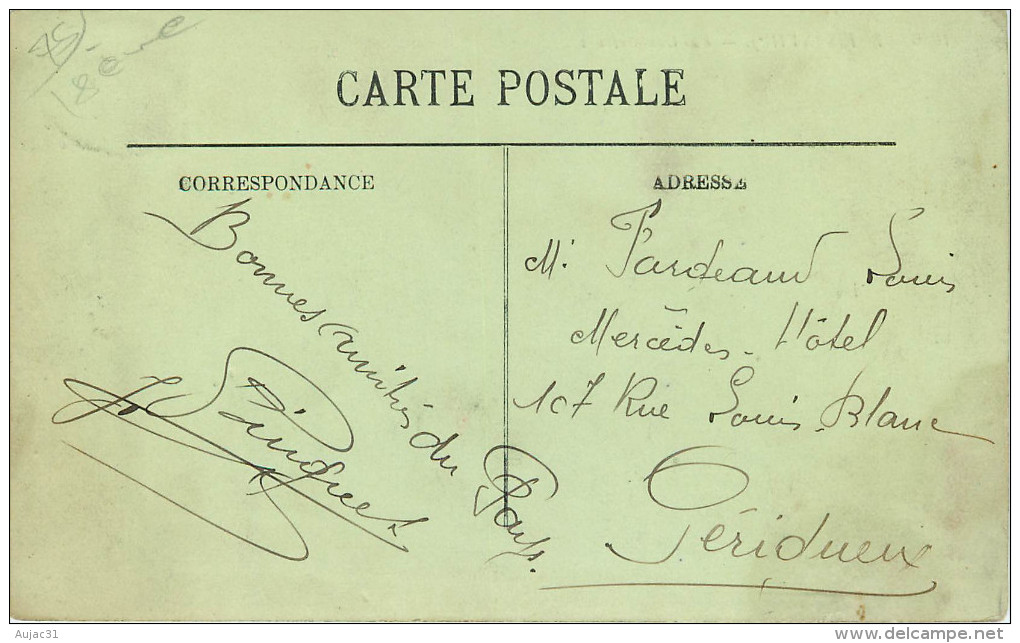 CARTE POSTALE
CORRESPONDANCE
Bonnes amitiés du Pays.
ADRESSE
Mr Louis
Mercédes. Hôtel
107 Rue Louis. Blanc
Périgueux
Aujac31
www.delcampe.net